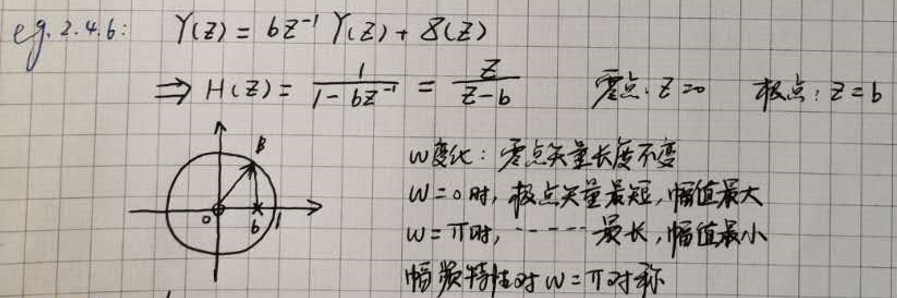 eg. 2.4.6: Y(z) = bz⁻¹ Y(z) + X(z)
⇒ H(z) = 1/(1-bz⁻¹) = z/(z-b) 零点: z=0 极点: z=b
B
0 b 1
w变化: 零点矢量长度不变
w=0时, 极点矢量最短, 幅值最大
w=π时, ------最长, 幅值最小
幅频特性对w=π对称